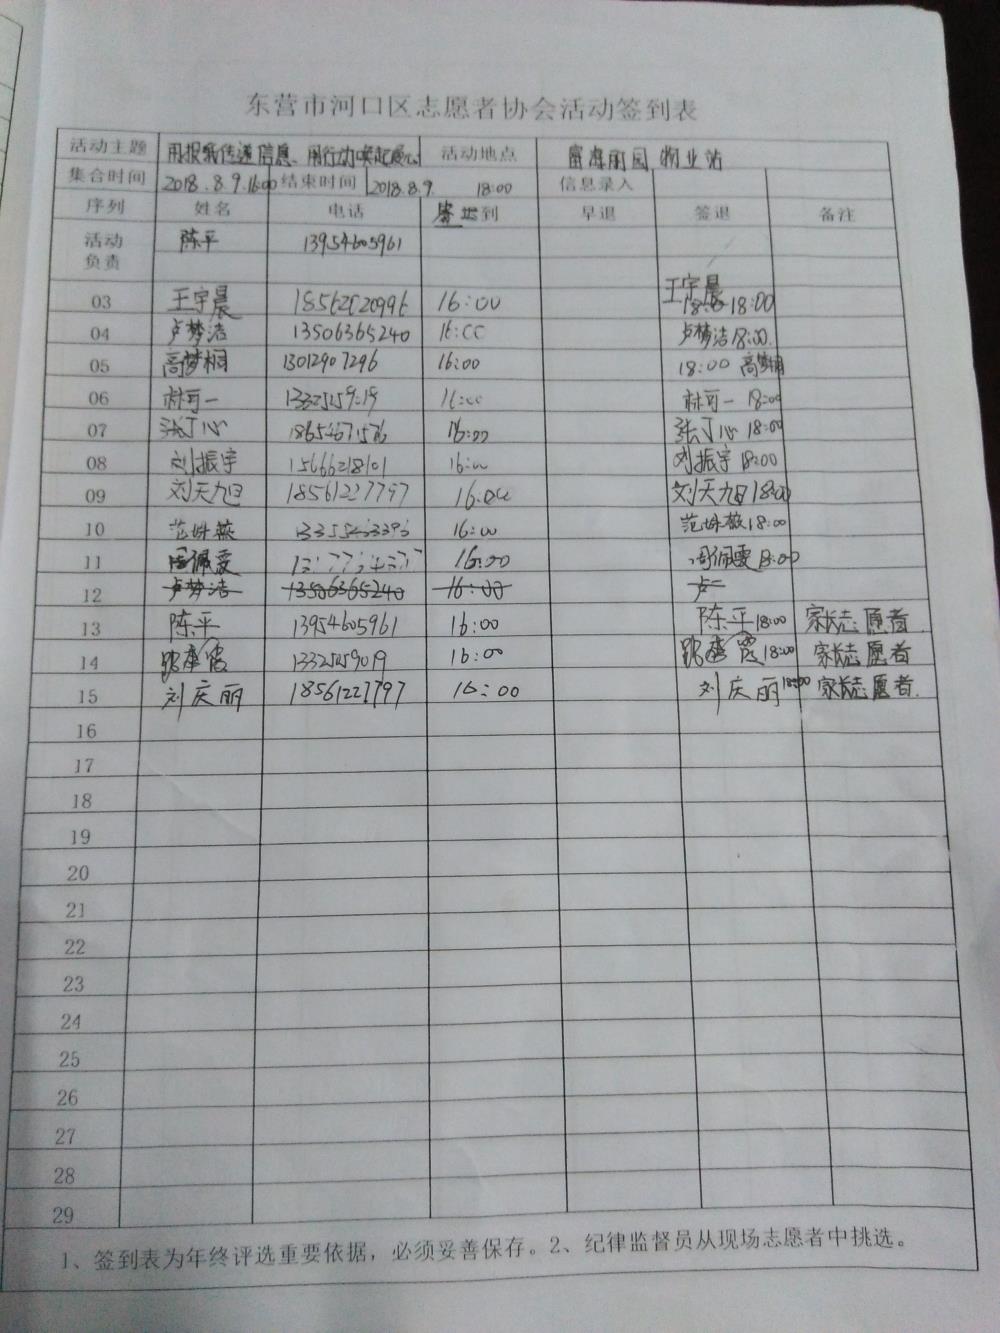 东营市河口区志愿者协会活动签到表
活动主题 用报纸传递信息、用行动唤起爱心 活动地点 富海家园 物业站
集合时间 2018.8.9.16:00 结束时间 2018.8.9. 18:00 信息录入
序列 姓名 电话 签到 早退 签退 备注
活动负责 陈平 13954605961
03 王宇晨 16:00 王宇晨 18:00
04 卢梦洁 13506365240 16:00 卢梦洁 18:00
05 高梦桐 13012907296 16:00 18:00 高梦桐
06 林可一 16:00 林可一 18:00
07 张丁心 16:00 张丁心 18:00
08 刘振宇 15666218101 16:00 刘振宇 18:00
09 刘天旭 18561227797 16:00 刘天旭 18:00
10 16:00 18:00
11 周佩雯 16:00 周佩雯 18:00
12 卢梦洁 13506365240 16:00 卢
13 陈平 13954605961 16:00 陈平 18:00 家长志愿者
14 13325259019 16:00 18:00 家长志愿者
15 刘庆丽 18561227797 16:00 刘庆丽 18:00 家长志愿者
16
17
18
19
20
21
22
23
24
25
26
27
28
29
1、签到表为年终评选重要依据，必须妥善保存。2、纪律监督员从现场志愿者中挑选。